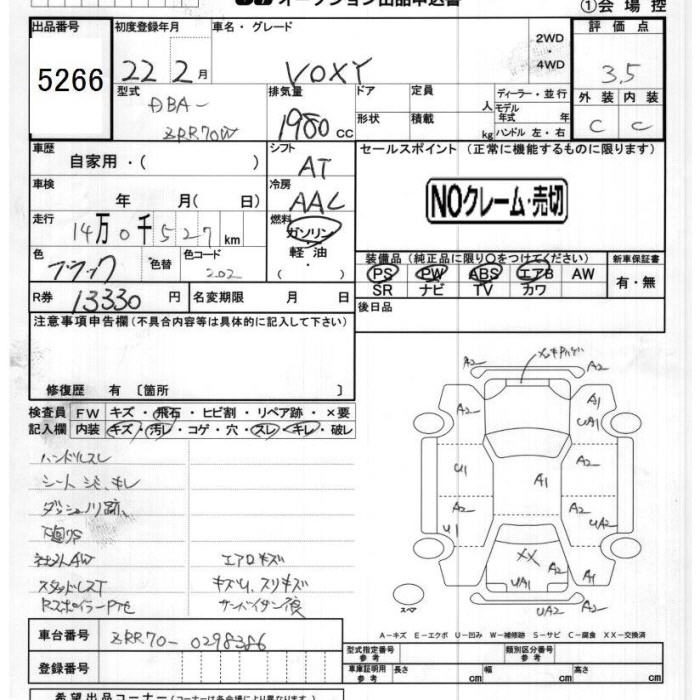 オークション出品申込書
①会場控
出品番号 5266
初度登録年月 22 2月
車名・グレード VOXY
2WD・4WD
評価点 3,5
外装 C 内装 C
型式 DBA- ZRR70W
排気量 1980 CC
ドア 定員 人
形状 積載 kg
ディーラー・並行
モデル年式 年
ハンドル 左・右
車歴 自家用・( )
シフト AT
セールスポイント (正常に機能するものに限ります)
NOクレーム・売切
車検 年 月( 日)
冷房 AAC
走行 14万0千527km
燃料 ガソリン・軽油
色 ブラック 色替 色コード 202
装備品(純正品に限り○をつけてください) 新車保証書
PS PW ABS エアB AW 有・無
SR ナビ TV カワ
R券 13330円 名変期限 月 日
後日品
注意事項申告欄(不具合内容等は具体的に記入して下さい)
修復歴 有 〔箇所 〕
検査員 FW キズ・飛石・ヒビ割・リペア跡・×要
記入欄 内装 キズ・汚レ・コゲ・穴・スレ・キレ・破レ
ハンドルスレ
シート シミ、キレ
ダッシュノリ跡、
下回サビ
社外AW エアロキズ
スタッドレスT キズU、スリキズ
RスポイラーPTセ
A2 A2
A2 A1
UA1
U1 A1 A2
A2 A2
U1 UA2
XX A2
UA1 A1
スペア UA2 A2
A-キズ E-エクボ U-凹み W-補修跡 S-サビ C-腐食 XX-交換済
車台番号 ZRR70-0298386
登録番号
型式指定番号 参考 類別区分番号 参考
車庫証明用 参考 長さ cm 幅 cm 高さ cm
希望出品コーナー(コーナーは各会場により異なります)